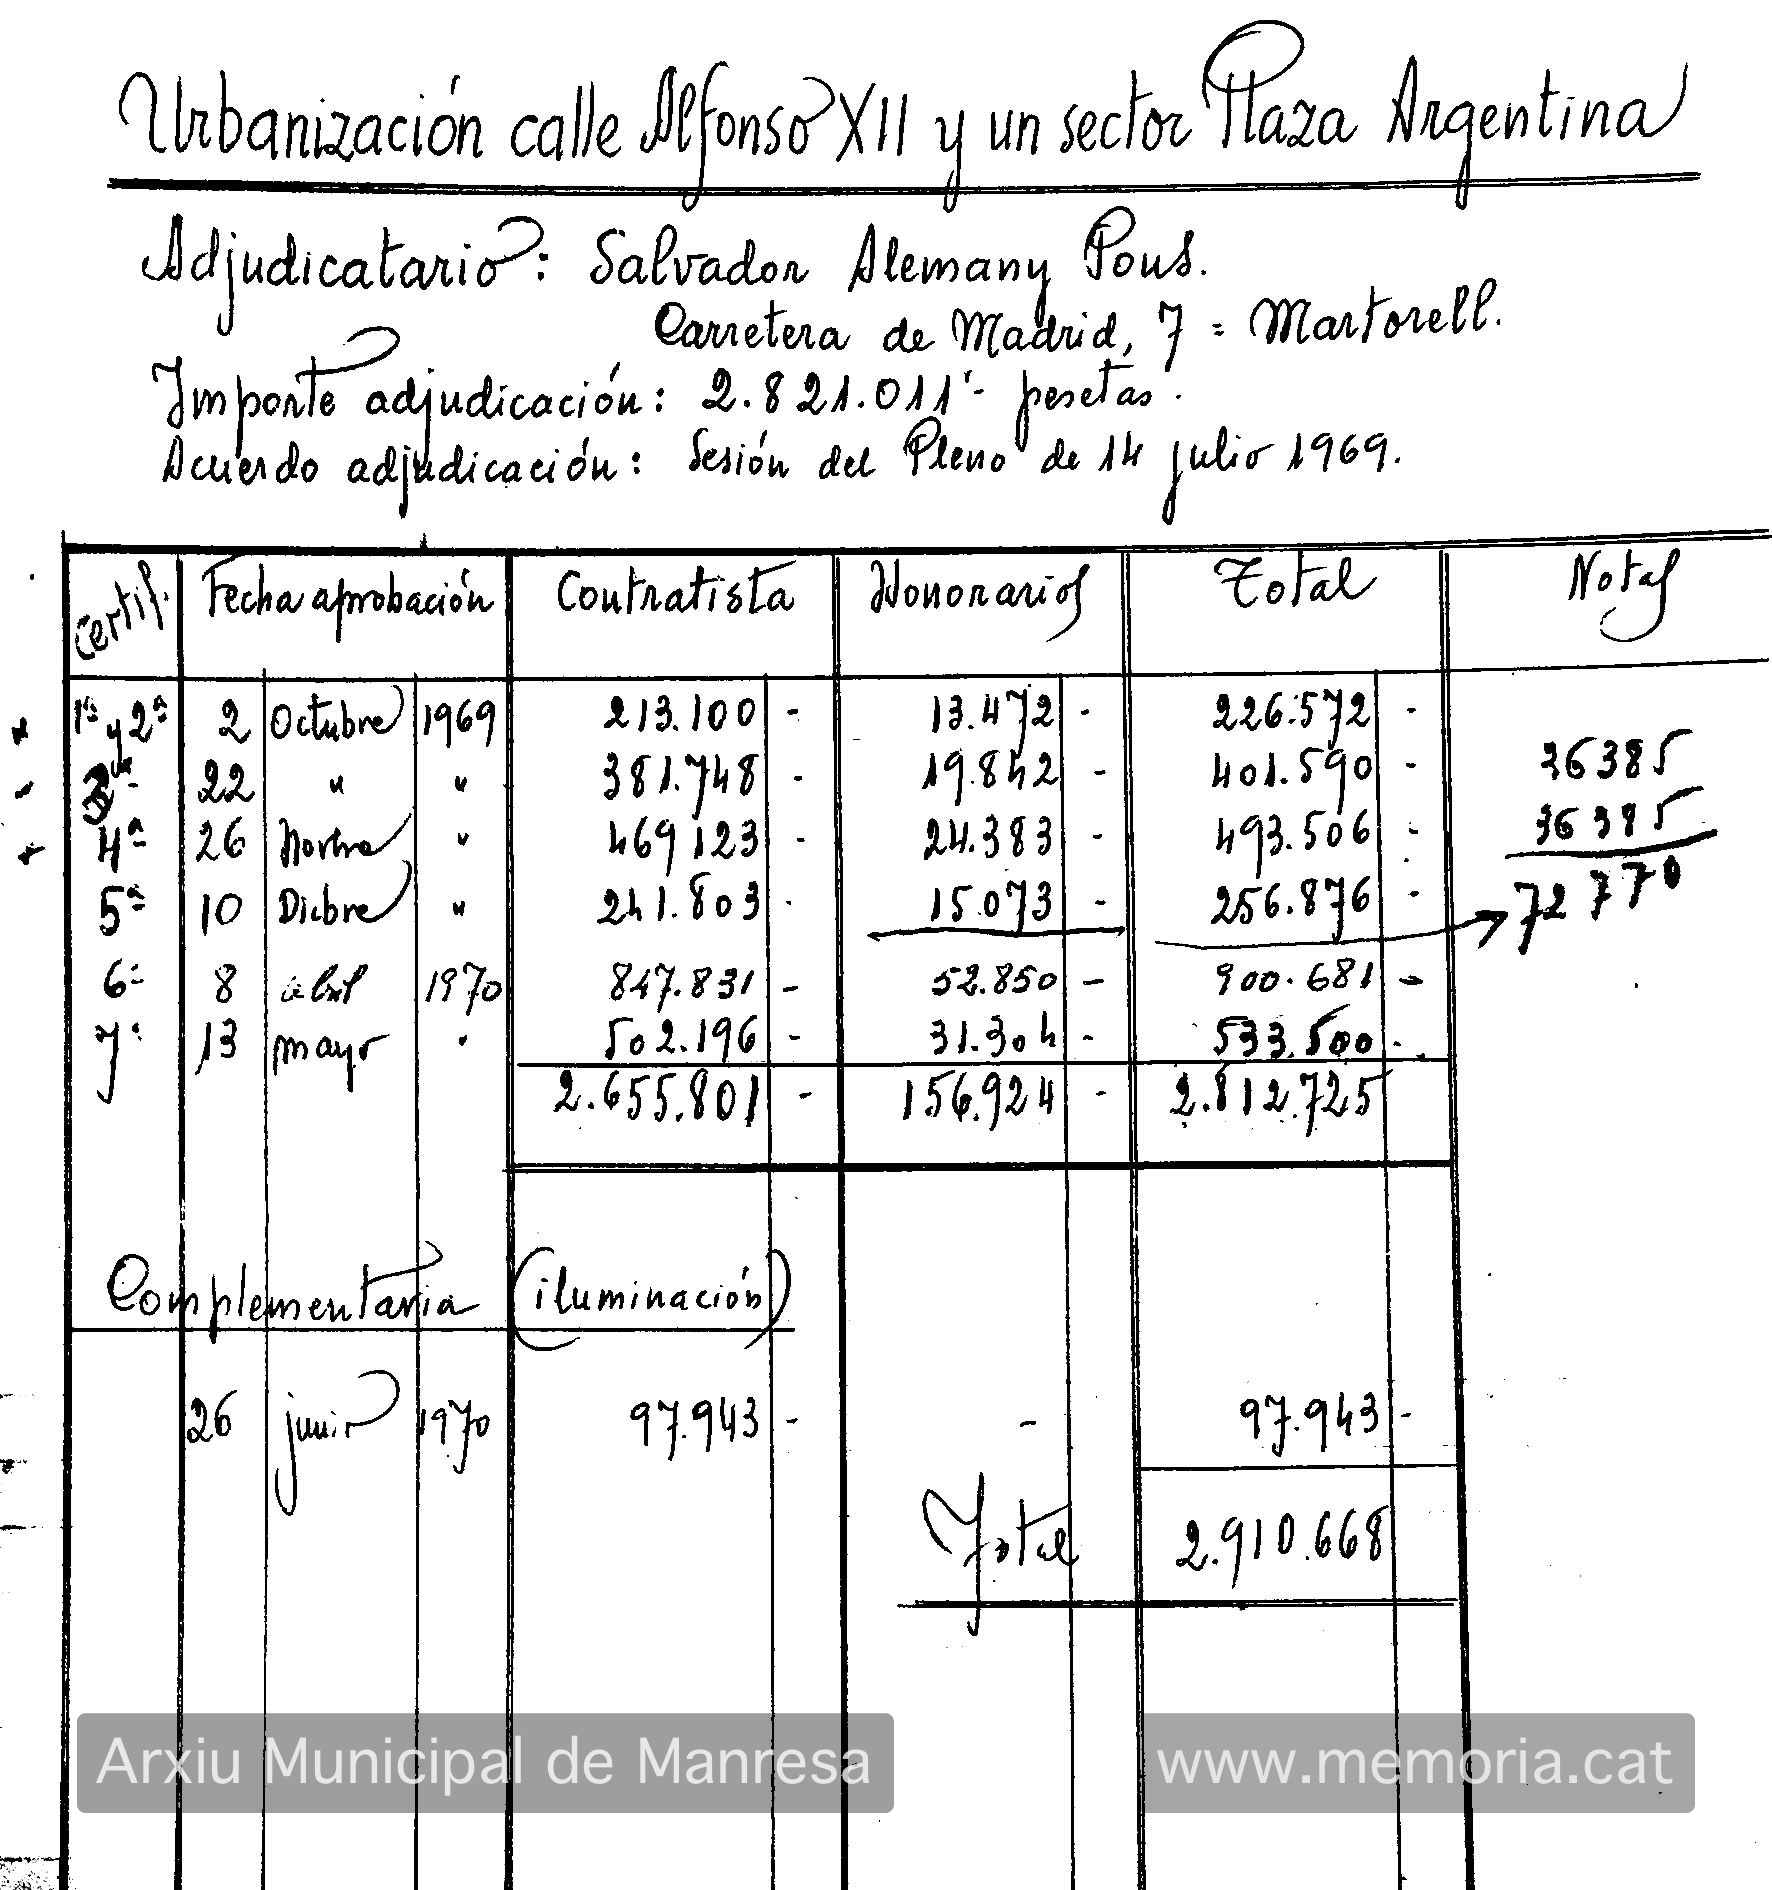 Urbanización calle Alfonso XII y un sector Plaza Argentina
Adjudicatario: Salvador Alemany Pous.
Carretera de Madrid, 7 = Martorell.
Importe adjudicación: 2.821.011'- pesetas.
Acuerdo adjudicación: Sesión del Pleno de 14 julio 1969.
Certif. Fecha aprobación Contratista Honorarios Total Notas
1ª y 2ª 2 Octubre 1969 213.100 - 13.472 - 226.572 -
3ª 22 " " 381.748 - 19.842 - 401.590 - 36385
4ª 26 Novbre " 469 123 - 24.383 - 493.506 - 36385
5ª 10 Dicbre " 241.803 - 15.073 - 256.876 - 72770
6ª 8 abril 1970 847.831 - 52.850 - 900.681 -
7ª 13 mayo " 502.196 - 31.304 - 533.500 -
2.655.801 - 156.924 - 2.812.725
Complementaria (iluminación)
26 junio 1970 97.943 - - 97.943 -
Total 2.910.668
Arxiu Municipal de Manresa www.memoria.cat